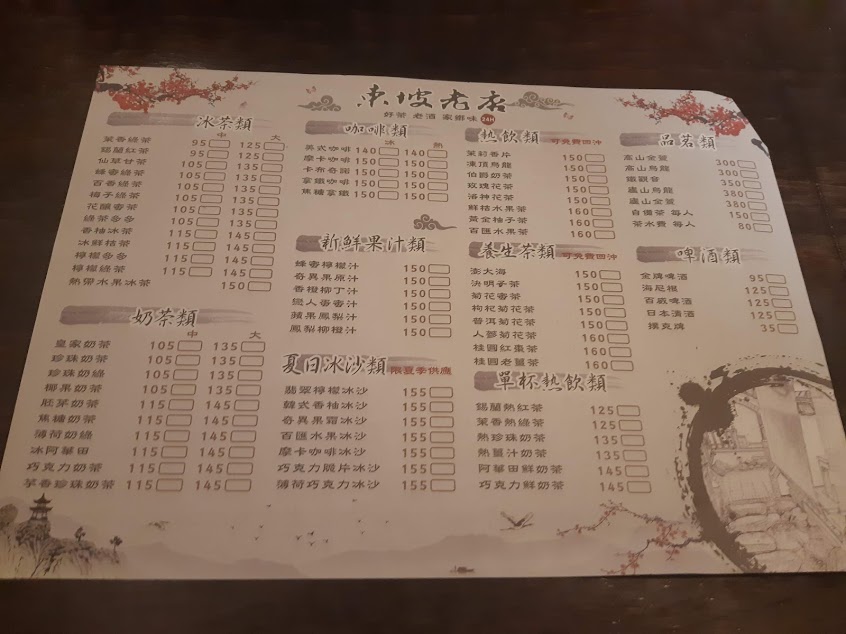 東坡老店
好茶 老酒 家鄉味 24H
冰茶類
中 大
茉香綠茶 95 125
錫蘭紅茶 95 125
仙草甘茶 105 135
蜂蜜綠茶 105 135
百香綠茶 105 135
梅子綠茶 105 135
花釀蜜茶 105 135
綠茶多多 105 135
香柚冰茶 115 145
冰鮮桔茶 115 145
檸檬多多 115 145
檸檬綠茶 115 145
熱帶水果冰茶 150
奶茶類
中 大
皇家奶茶 105 135
珍珠奶茶 105 135
珍珠奶綠 105 135
椰果奶茶 105 135
胚芽奶茶 115 145
焦糖奶茶 115 145
薄荷奶綠 115 145
冰阿華田 115 145
巧克力奶茶 115 145
芋香珍珠奶茶 115 145
咖啡類
冰 熱
美式咖啡 140 140
摩卡咖啡 150 150
卡布奇諾 150 150
拿鐵咖啡 150 150
焦糖拿鐵 150 150
新鮮果汁類
蜂蜜檸檬汁 150
奇異果原汁 150
香橙柳丁汁 150
戀人蜜蜜汁 150
蘋果鳳梨汁 150
鳳梨柳橙汁 150
夏日冰沙類 限夏季供應
翡翠檸檬冰沙 155
韓式香柚冰沙 155
奇異果霜冰沙 155
百匯水果冰沙 155
摩卡咖啡冰沙 155
巧克力脆片冰沙 155
薄荷巧克力冰沙 155
熱飲類 可免費回沖
茉莉香片 150
凍頂烏龍 150
伯爵奶茶 150
玫瑰花茶 150
洛神花茶 150
鮮桔水果茶 160
黃金柚子茶 160
百匯水果茶 160
養生茶類 可免費回沖
澎大海 150
決明子茶 150
菊花蜜茶 150
枸杞菊花茶 150
普洱菊花茶 150
人蔘菊花茶 160
桂圓紅棗茶 160
桂圓老薑茶 160
單杯熱飲類
錫蘭熱紅茶 125
茉香熱綠茶 125
熱珍珠奶茶 135
熱薑汁奶茶 135
阿華田鮮奶茶 145
巧克力鮮奶茶 145
品茗類
高山金萱 300
高山烏龍 300
鐵觀音 350
廬山烏龍 380
廬山金萱 380
自備茶 每人 150
茶水費 每人 80
啤酒類
金牌啤酒 95
海尼根 125
百威啤酒 125
日本清酒 125
撲克牌 35